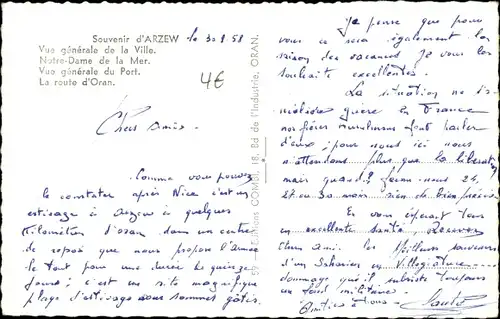 Souvenir d'ARZEW le 30.8.58
Vue générale de la Ville.
Notre-Dame de la Mer.
Vue générale du Port.
La route d'Oran.
4€
Chers amis.
Comme vous pouvez
le constater après Nice c'est en
estivage à Arzew à quelques
kilomètres d'Oran dans un centre
de repos que nous propose l'Armée
le tout pour une durée de quinze
jours; c'est un site magnifique
plage d'estivage nous sommes gâtés.
59 Editions COMBI, 18, Bd de l'Industrie, ORAN.
Je pense que pour
vous ce sera également la
saison des vacances Je vous les
souhaite excellentes.
La situation ne s'
améliore guère en France
nos frères musulmans font parler
d'eux; pour nous ici nous
n'attendons plus que la libération
mais quand? ferons-nous 24,
27 ou 30 mois rien de bien précis.
En vous espérant tous
en excellente santé, Recevez
chers amis. les meilleurs souvenirs
d'un Saharien en Villégiature
dommage qu'il subsiste toujours
un fond militaire.
Amitiés à tous.